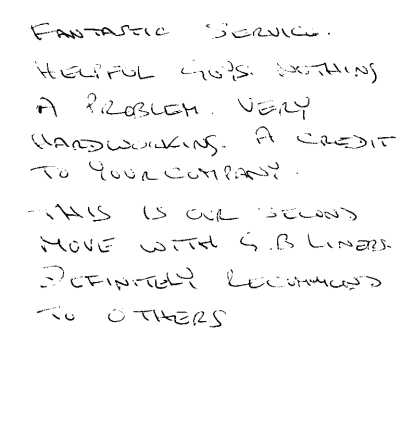 FANTASTIC SERVICE.
HELPFUL GUYS. NOTHING
A PROBLEM. VERY
HARDWORKING. A CREDIT
TO YOUR COMPANY.
THIS IS OUR SECOND
MOVE WITH G.B LINERS.
DEFINITELY RECOMMEND
TO OTHERS